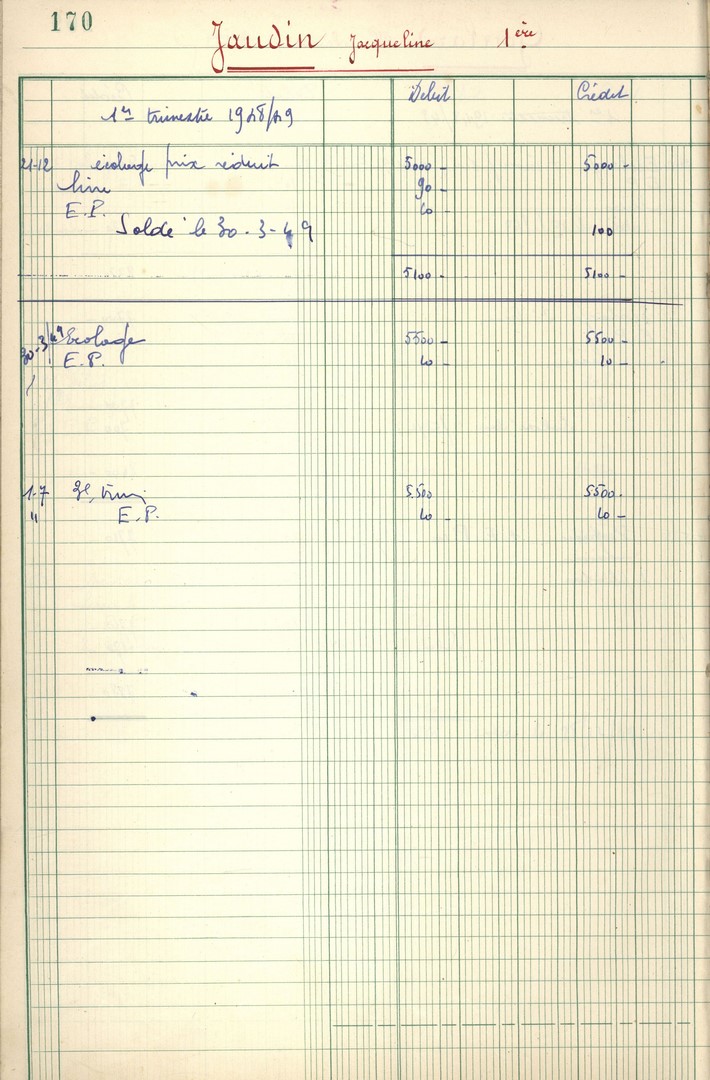 170
Jaudin Jacqueline 1ère
1er trimestre 1948/49 Débit Crédit
21-12 écolage prix réduit 5000 - 5000 -
livre 90 -
E.P. 10 -
Solde le 30-3-49 100
5100 - 5100 -
30-3/49 Ecolage 5500 - 5500 -
E.P. 10 - 10 -
1-7 3e trim. 5500 5500 -
" E.P. 10 - 10 -